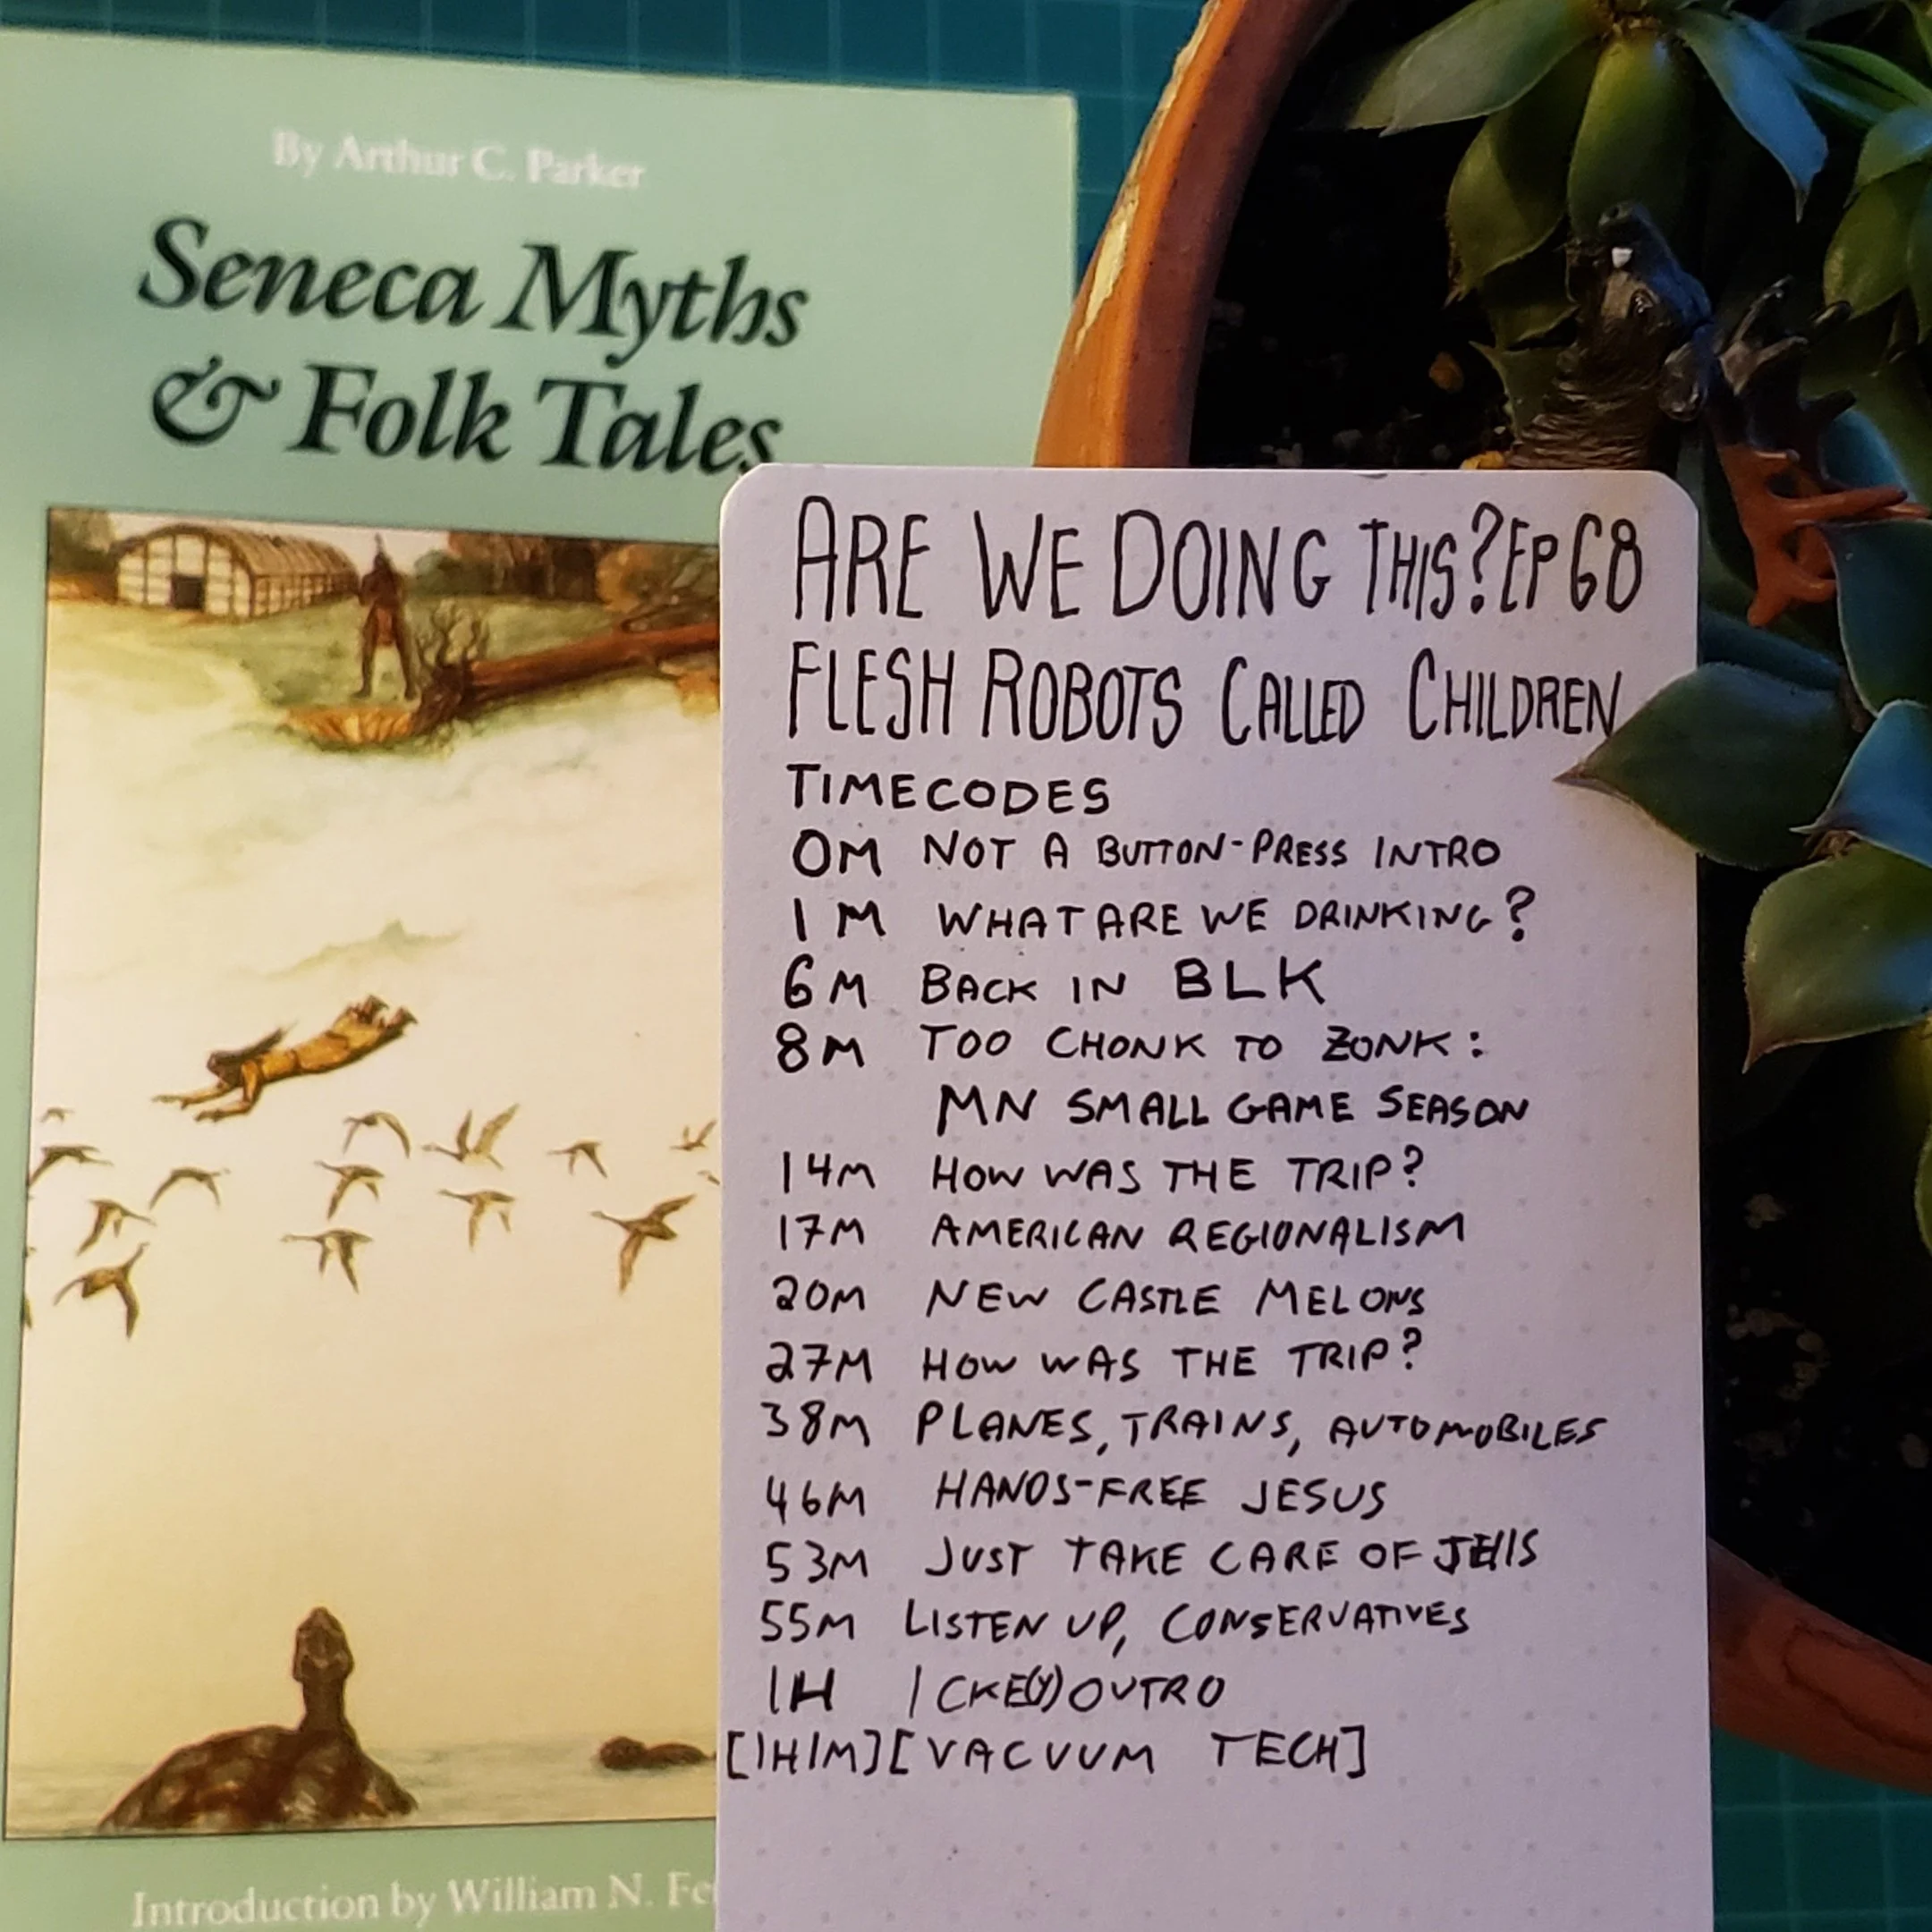 By Arthur C. Parker
Seneca Myths
& Folk Tales
Introduction by William N.
ARE WE DOING THIS? EP 68
FLESH ROBOTS CALLED CHILDREN
TIMECODES
0M NOT A BUTTON-PRESS INTRO
1M WHAT ARE WE DRINKING?
6M BACK IN BLK
8M TOO CHONK TO ZONK:
MN SMALL GAME SEASON
14M HOW WAS THE TRIP?
17M AMERICAN REGIONALISM
20M NEW CASTLE MELONS
27M HOW WAS THE TRIP?
38M PLANES, TRAINS, AUTOMOBILES
46M HANDS-FREE JESUS
53M JUST TAKE CARE OF
55M LISTEN UP, CONSERVATIVES
1H ICKE(Y) OUTRO
[1H1M][VACUUM TECH]